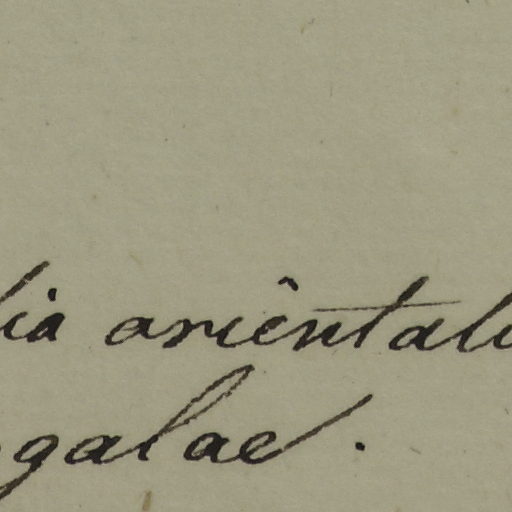 lia oriêntali
galae.